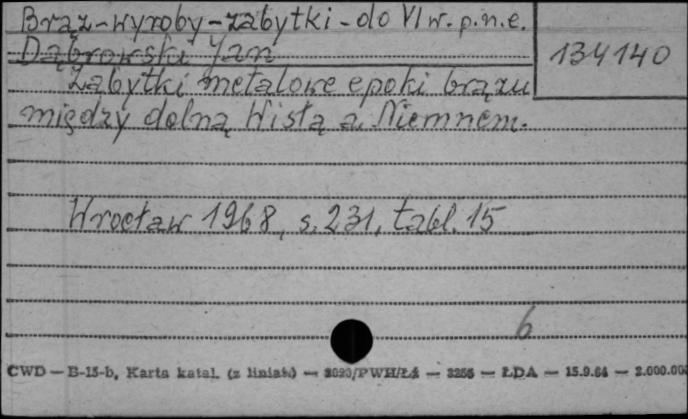 Brąz-wyroby-zabytki-do VI w. p.n.e.
Dąbrowski Jan
134140
Zabytki metalowe epoki brązu
między dolną Wisłą a Niemnem.
Wrocław 1968, s. 231, tabl. 15
6
CWD — B-15-b, Karta katal. (z liniat.) — /PWH/Łź — — ŁDA — 15.9.64 — 2.000.000